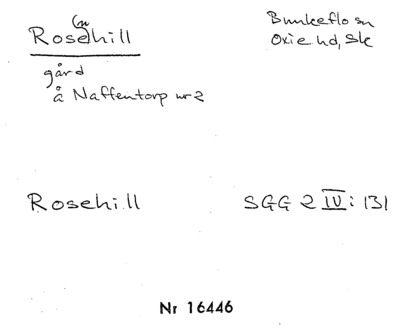 Rose(n)hill
Bunkeflo sn
Oxie hd, Sk
gård
å Naffentorp nr 2
Rosehill
SGG 2 IV: 131
Nr 16446